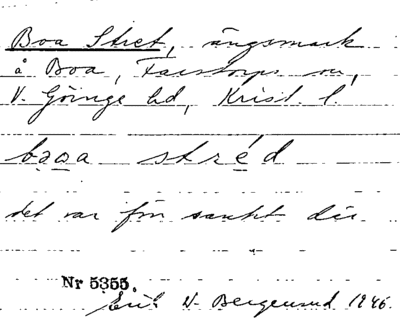 Boa Stret, ängsmark
å Boa, Farstorps sn,
V. Göinge hd, Krist. l.
baoa stréd
det var förr sankt där
Nr 5355.
Erik W. Bergenrud 1946.